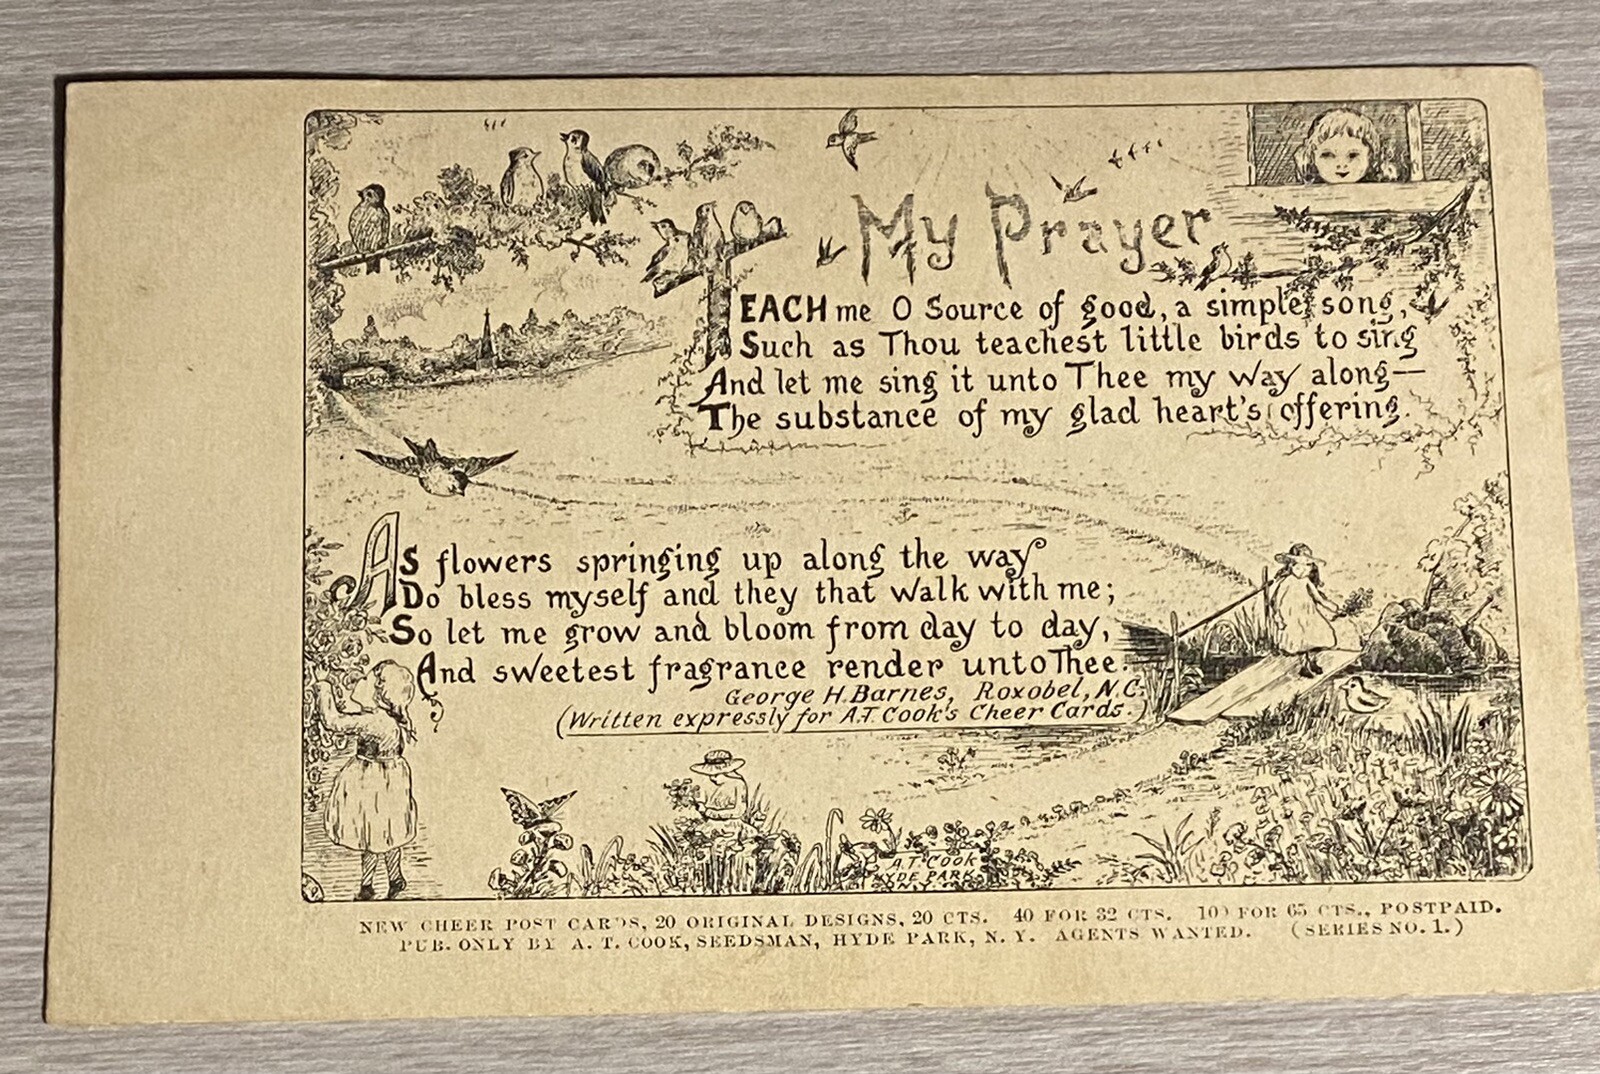 My Prayer
TEACH me O Source of good, a simple song,
Such as Thou teachest little birds to sing
And let me sing it unto Thee my way along—
The substance of my glad heart's offering.
As flowers springing up along the way
Do bless myself and they that walk with me;
So let me grow and bloom from day to day,
And sweetest fragrance render unto Thee.
George H. Barnes, Roxobel, N.C.
(Written expressly for A.T. Cook's Cheer Cards.)
A.T. COOK
HYDE PARK
N.Y.
NEW CHEER POST CARDS, 20 ORIGINAL DESIGNS, 20 CTS. 40 FOR 32 CTS. 100 FOR 65 CTS., POSTPAID.
PUB. ONLY BY A. T. COOK, SEEDSMAN, HYDE PARK, N. Y. AGENTS WANTED. (SERIES NO. 1.)